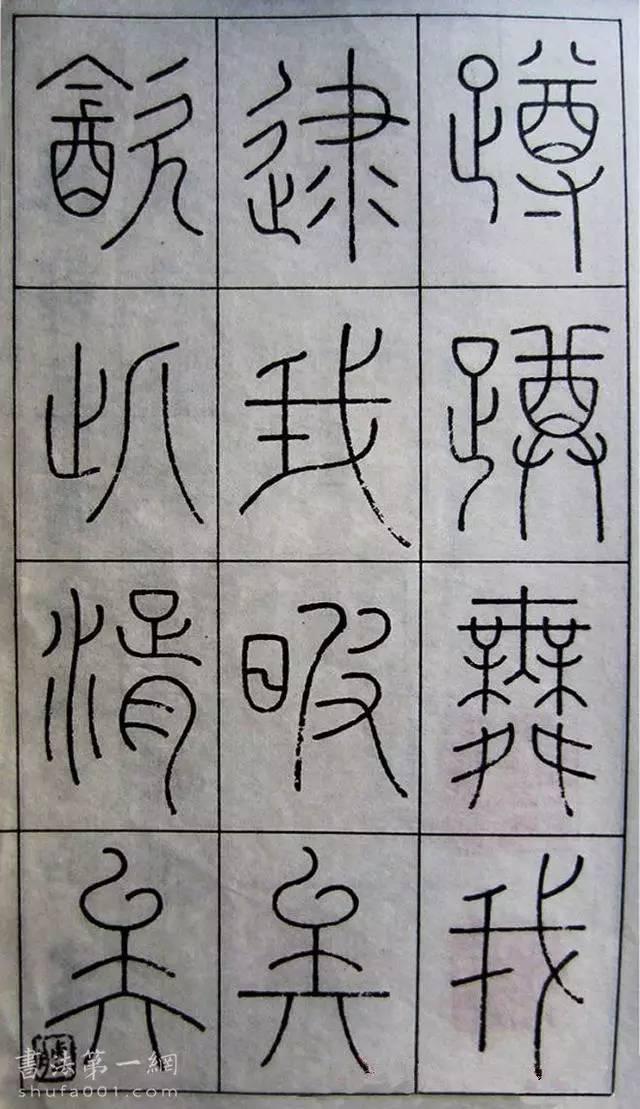 蹲蹲舞我
逮我暇矣
飲此湑矣
書法第一網
shufa001.com